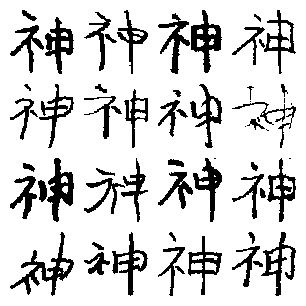 神神神神
神神神神
神神神神
神神神神